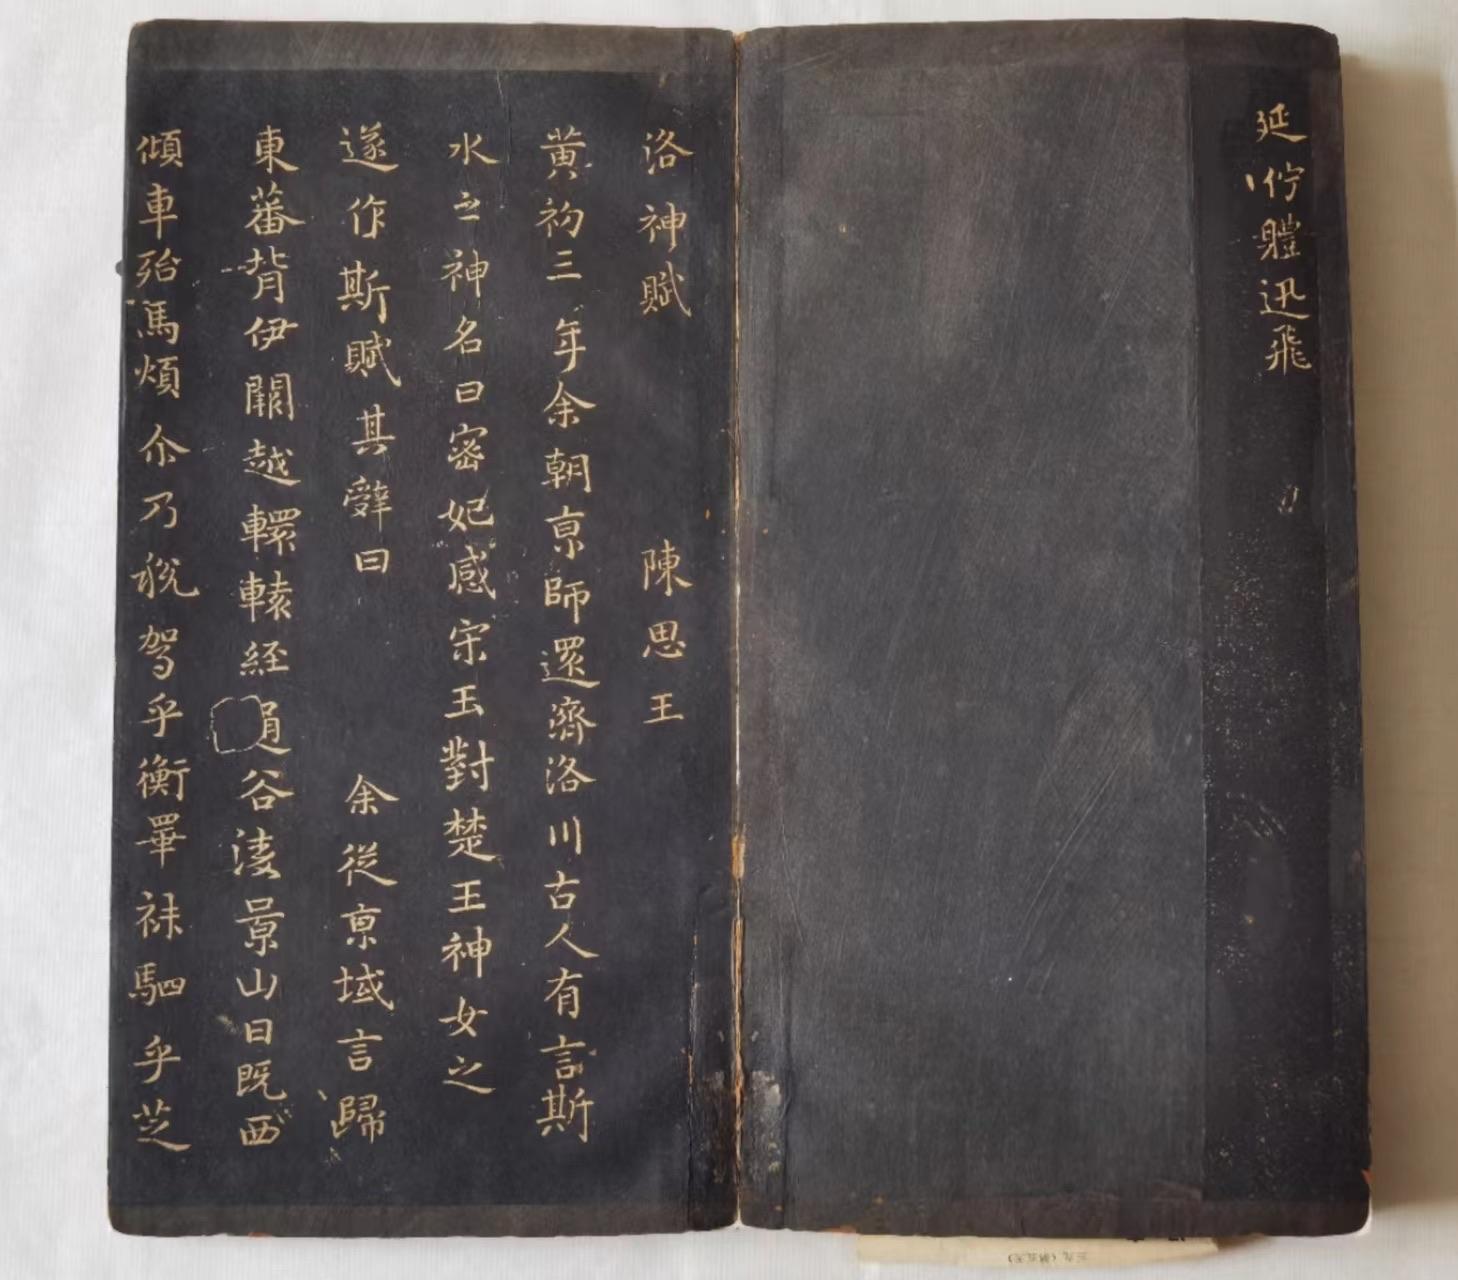 延佇體迅飛
洛神賦 陳思王
黃初三年余朝京師還濟洛川古人有言斯
水之神名曰宓妃感宋玉對楚王神女之
遂作斯賦其辭曰 余從京域言歸
東蕃背伊闕越轘轅經通谷淩景山日既西
傾車殆馬煩尒乃税駕乎衡皋秣駟乎芝